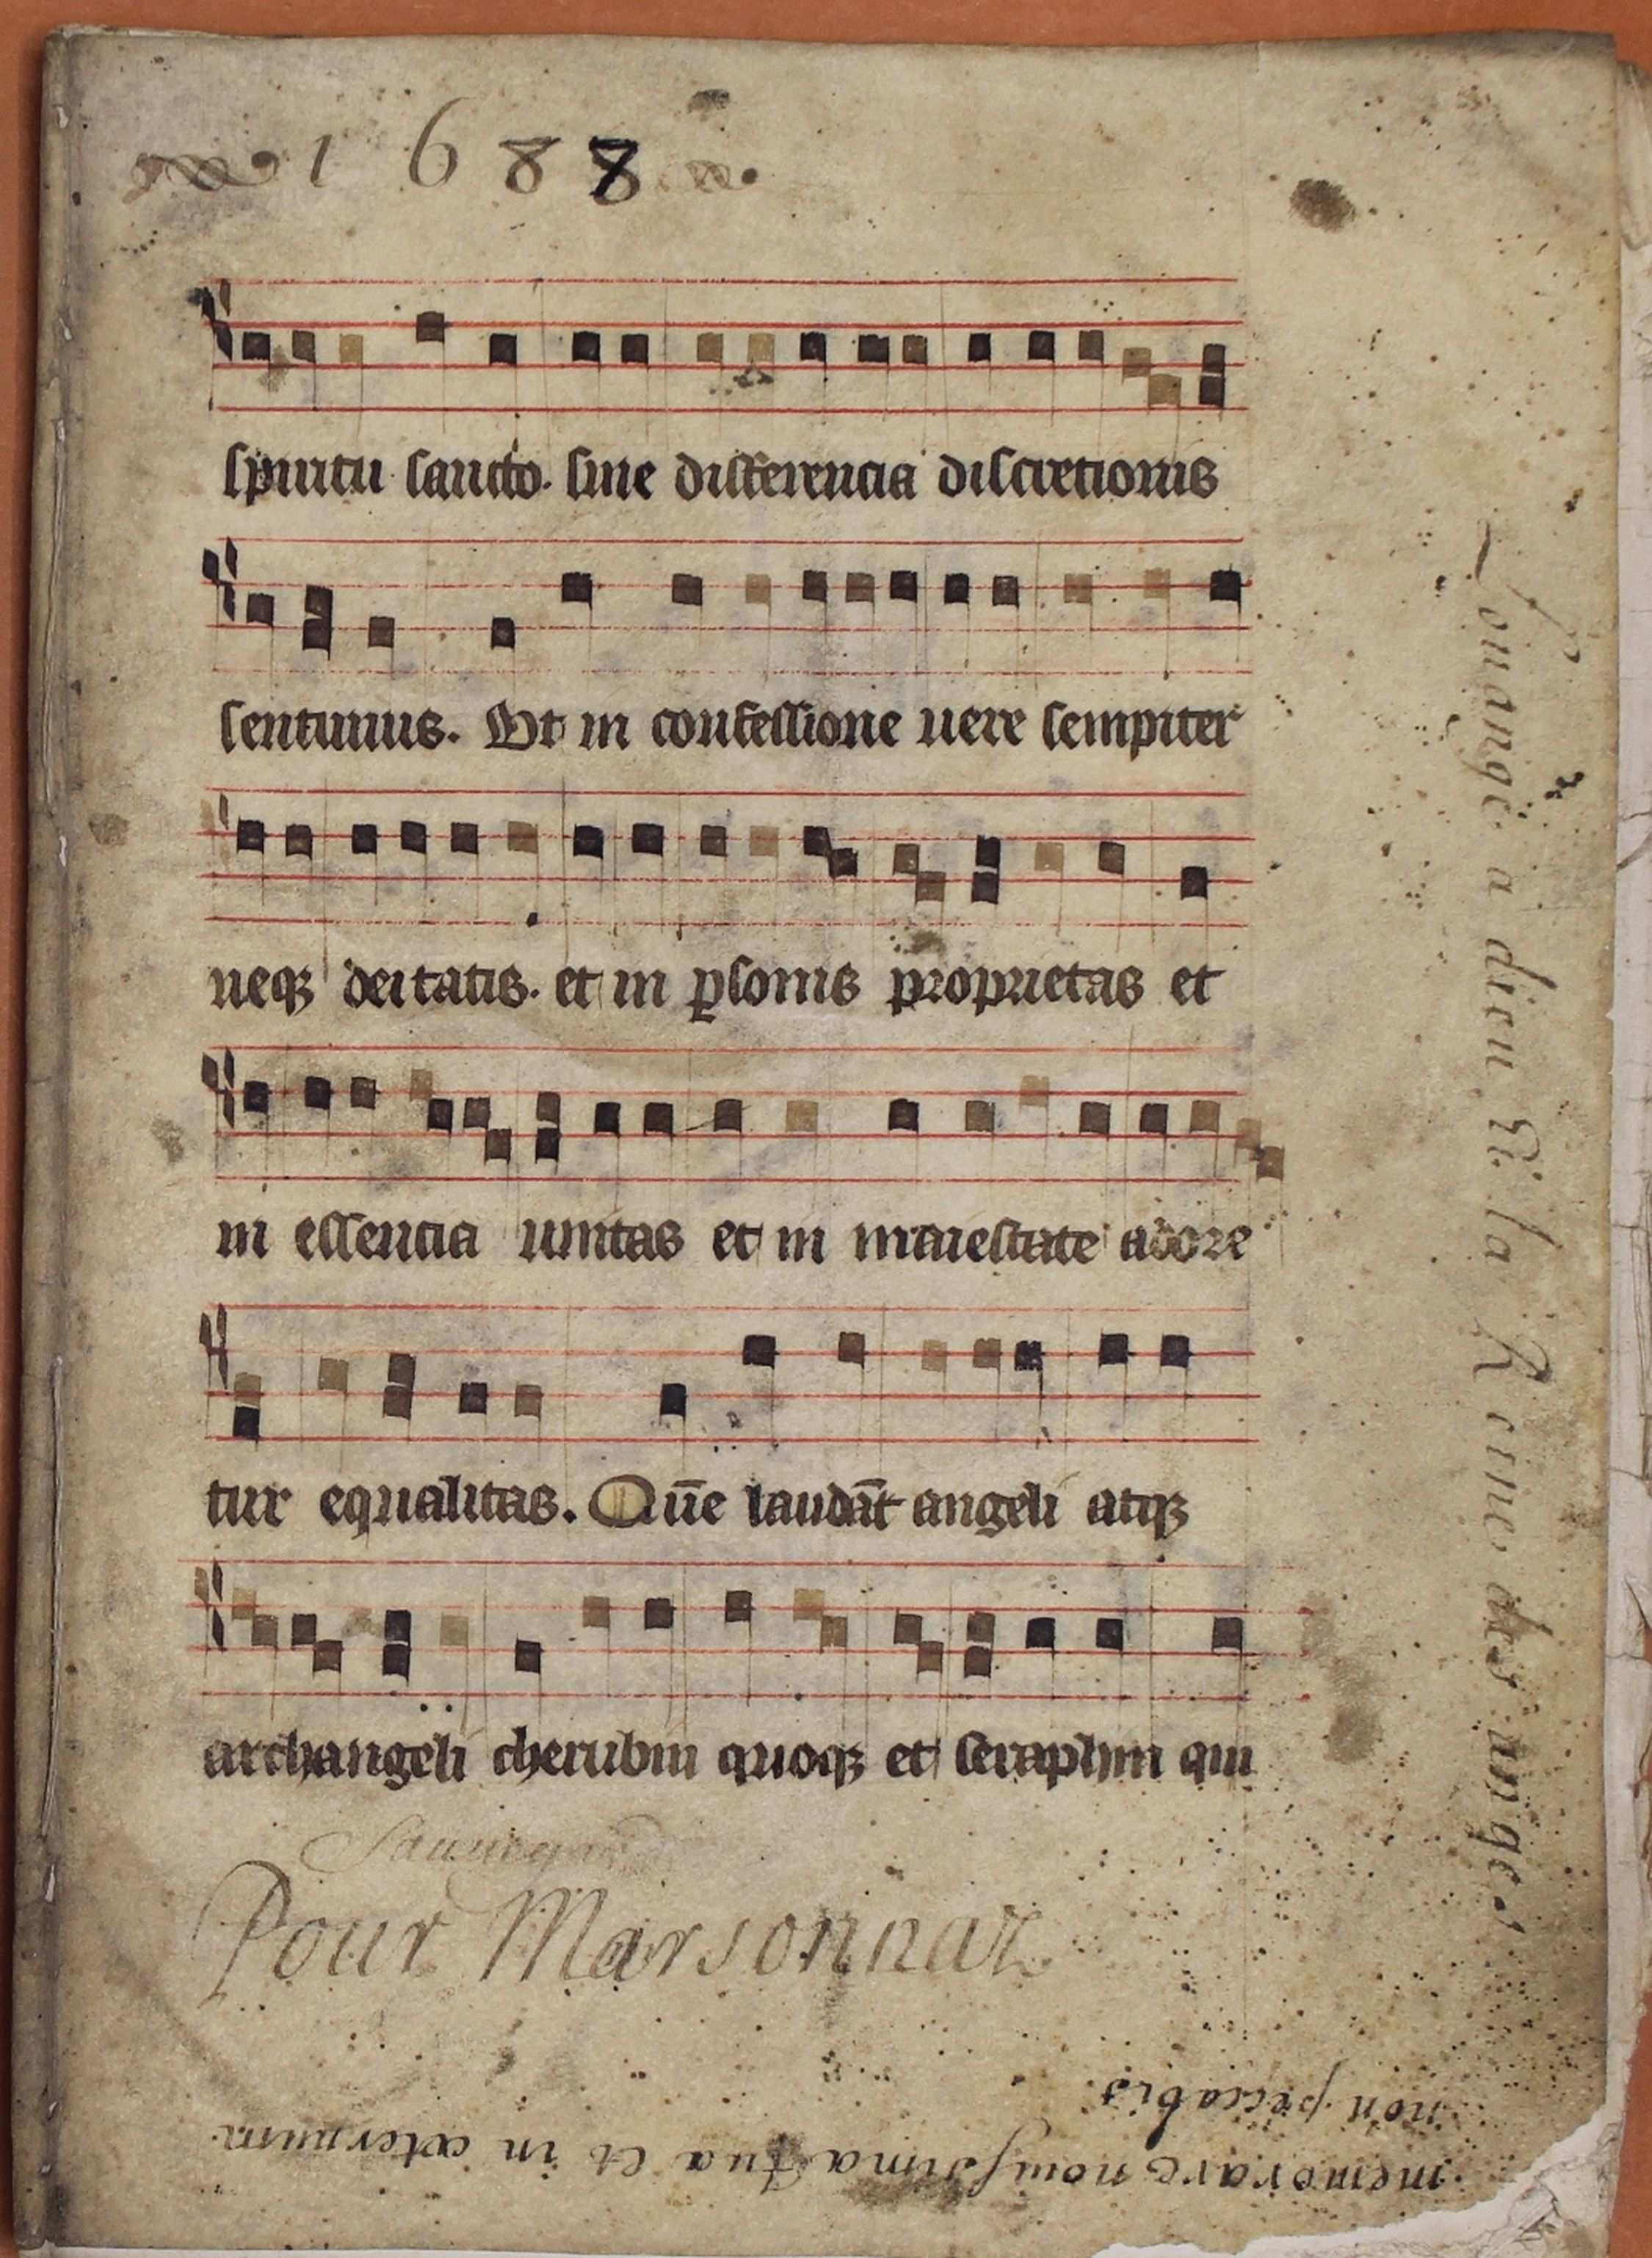 1688
spiritu sancto. sine differencia discretionis
sentimus. Et in confessione uere sempiter
neqꝫ deitatis. et in ꝑsonis proprietas et
in essencia unitas et in maiestate adore
tur equalitas. Quē laudāt angeli atqꝫ
archangeli cherubin quoqꝫ et seraphin qui
Pour Marsonnaz
Louange a dieu Et la Reine des anges
memorare nouissima tua et in æternum
non peccabis